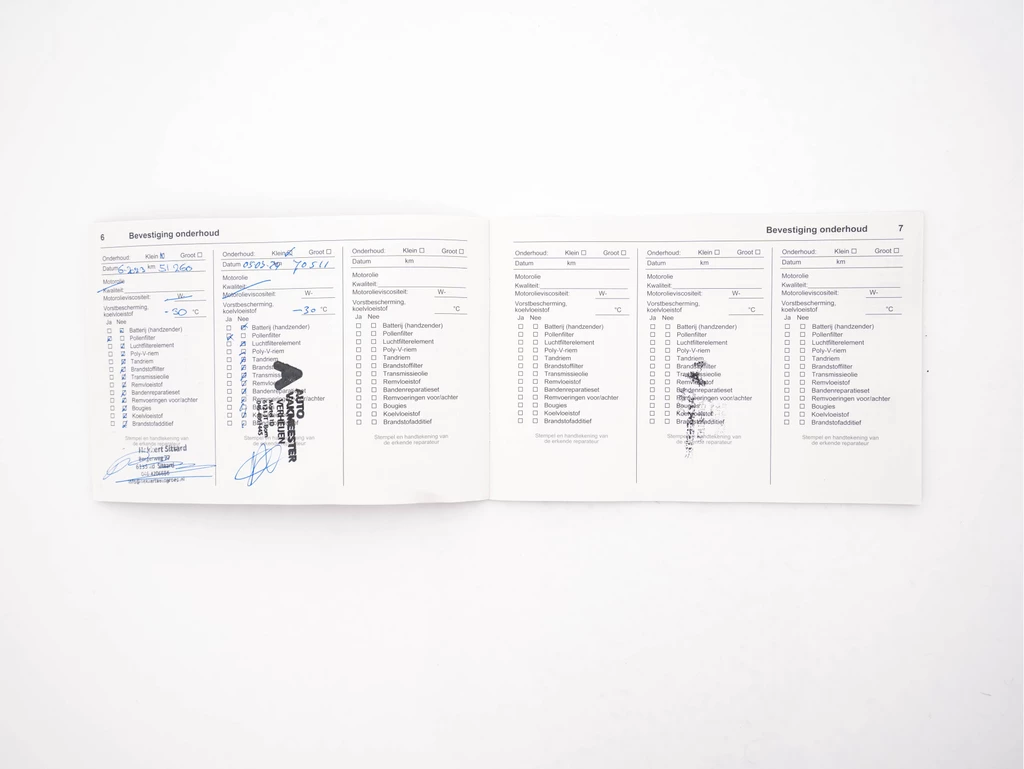 6 Bevestiging onderhoud
Onderhoud: Klein Groot
Datum 6-2-23 km 51 260
Motorolie
Kwaliteit:
Motorolieviscositeit: W-
Vorstbescherming,
koelvloeistof -30 °C
Ja Nee
Batterij (handzender)
Pollenfilter
Luchtfilterelement
Poly-V-riem
Tandriem
Brandstoffilter
Transmissieolie
Remvloeistof
Bandenreparatieset
Remvoeringen voor/achter
Bougies
Koelvloeistof
Brandstofadditief
Stempel en handtekening van
de erkende reparateur
Sittard
Onderhoud: Klein Groot
Datum 05-03-24 70511
Motorolie
Kwaliteit:
Motorolieviscositeit:
Vorstbescherming,
koelvloeistof -30 °C
Ja Nee
Batterij (handzender)
Pollenfilter
Luchtfilterelement
Poly-V-riem
Tandriem
AUTO
VAKMEESTER
VERHEIJEN
Onderhoud: Klein Groot
Datum km
Motorolie
Kwaliteit:
Motorolieviscositeit: W-
Vorstbescherming,
koelvloeistof °C
Ja Nee
Batterij (handzender)
Pollenfilter
Luchtfilterelement
Poly-V-riem
Tandriem
Brandstoffilter
Transmissieolie
Remvloeistof
Bandenreparatieset
Remvoeringen voor/achter
Bougies
Koelvloeistof
Brandstofadditief
Stempel en handtekening van
de erkende reparateur
Bevestiging onderhoud 7
Onderhoud: Klein Groot
Datum km
Motorolie
Kwaliteit:
Motorolieviscositeit: W-
Vorstbescherming,
koelvloeistof °C
Ja Nee
Batterij (handzender)
Pollenfilter
Luchtfilterelement
Poly-V-riem
Tandriem
Brandstoffilter
Transmissieolie
Remvloeistof
Bandenreparatieset
Remvoeringen voor/achter
Bougies
Koelvloeistof
Brandstofadditief
Stempel en handtekening van
de erkende reparateur
Onderhoud: Klein Groot
Datum km
Motorolie
Kwaliteit:
Motorolieviscositeit: W-
Vorstbescherming,
koelvloeistof °C
Ja Nee
Batterij (handzender)
Pollenfilter
Luchtfilterelement
Poly-V-riem
Tandriem
Brandstoffilter
Transmissieolie
Remvloeistof
Bandenreparatieset
Remvoeringen voor/achter
Bougies
Koelvloeistof
Brandstofadditief
Stempel en handtekening van
de erkende reparateur
Onderhoud: Klein Groot
Datum km
Motorolie
Kwaliteit:
Motorolieviscositeit: W-
Vorstbescherming,
koelvloeistof °C
Ja Nee
Batterij (handzender)
Pollenfilter
Luchtfilterelement
Poly-V-riem
Tandriem
Brandstoffilter
Transmissieolie
Remvloeistof
Bandenreparatieset
Remvoeringen voor/achter
Bougies
Koelvloeistof
Brandstofadditief
Stempel en handtekening van
de erkende reparateur